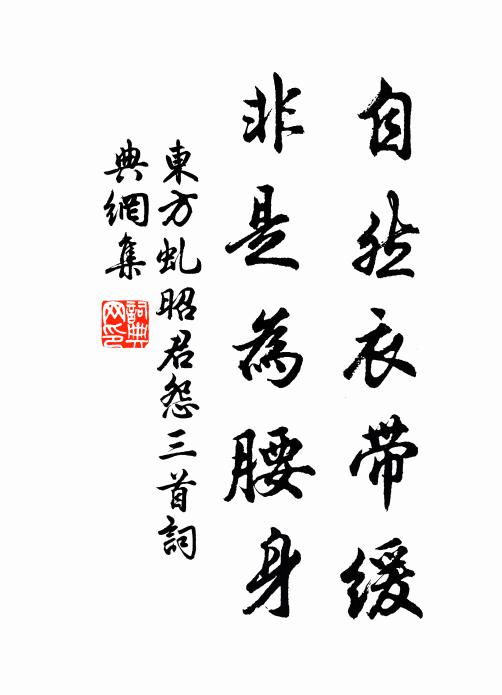 自然衣带緩
非是為腰身
東方虬昭君怨三首詞
典網集
詞典
网印